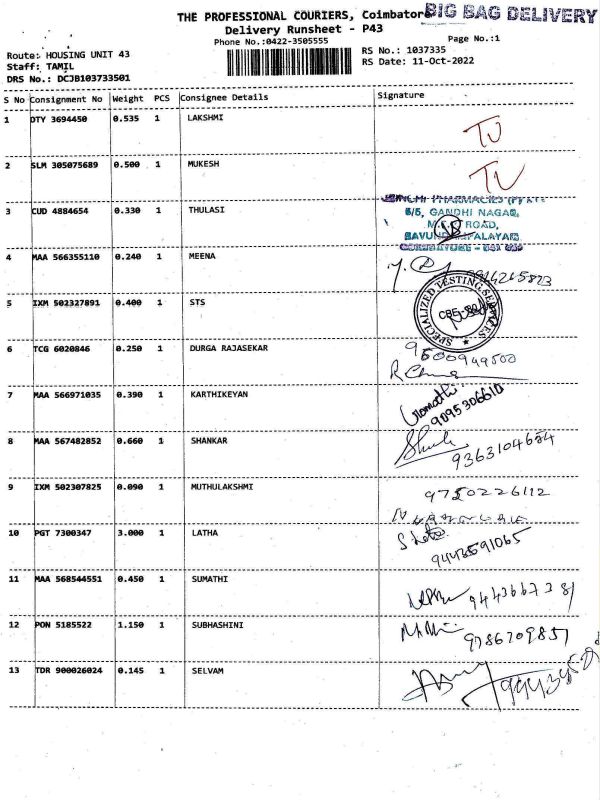 THE PROFESSIONAL COURIERS, Coimbatore BIG BAG DELIVERY
Delivery Runsheet - P43
Phone No.:0422-3505555 Page No.:1
Route: HOUSING UNIT 43 RS No.: 1037335
Staff: TAMIL RS Date: 11-Oct-2022
DRS No.: DCJB103733501
S No Consignment No Weight PCS Consignee Details Signature
1 OTY 3694450 0.535 1 LAKSHMI
2 SLM 305075689 0.500 1 MUKESH
3 CUD 4884654 0.330 1 THULASI
5/5, GANDHI NAGAR,
ROAD,
4 MAA 566355110 0.240 1 MEENA
5 IXM 502327891 0.400 1 STS
SPECIALIZED TESTING SERVICES
6 TCG 6020846 0.250 1 DURGA RAJASEKAR
7 MAA 566971035 0.390 1 KARTHIKEYAN
9095306610
8 MAA 567482852 0.660 1 SHANKAR
9363104654
9 IXM 502307825 0.090 1 MUTHULAKSHMI 9750226112
10 PGT 7300347 3.000 1 LATHA
9443591065
11 MAA 568544551 0.450 1 SUMATHI
9443667381
12 PON 5185522 1.150 1 SUBHASHINI
9786709851
13 TDR 900026024 0.145 1 SELVAM